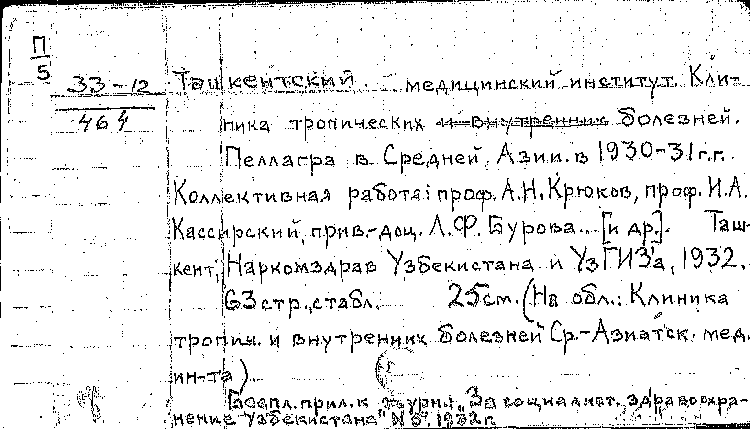 П
5
33-12
464
Ташкентский медицинский институт. Кли-
ника тропических и внутренних болезней.
Пеллагра в Средней Азии в 1930-31 г.г.
Коллективная работа: проф. А.Н. Крюков, проф. И.А.
Кассирский, прив.-доц. Л.Ф. Бурова.. [и др.]. Таш-
кент, Наркомздрав Узбекистана и УзГИЗ'а, 1932.
63 стр., с табл. 25 см. (На обл.: Клиника
тропич. и внутренних болезней Ср.-Азиатск. мед.
ин-та).
Беспл. прил. к журн.: "За социалист. здравоохра-
нение Узбекистана" 1932 г.